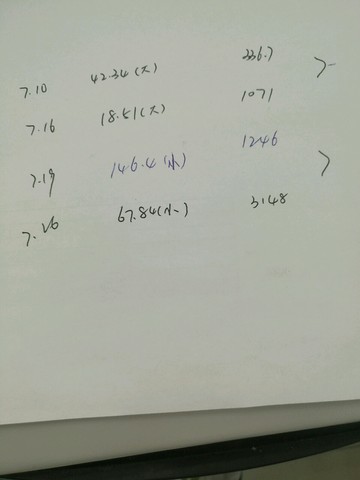 7.10 42.34(大) 336.7 >
7.16 18.51(大) 1071
7.19 146.4(小) 1246 >
7.26 67.84(小) 3148